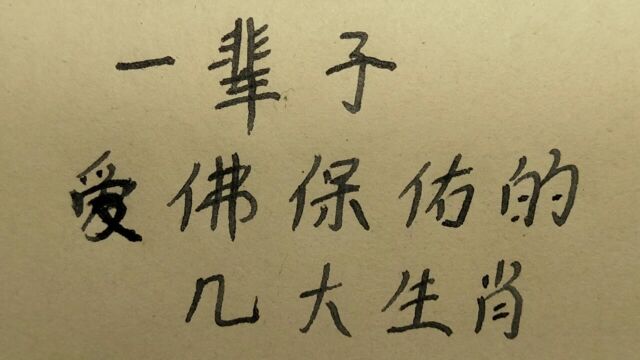 一辈子
爱佛保佑的
几大生肖